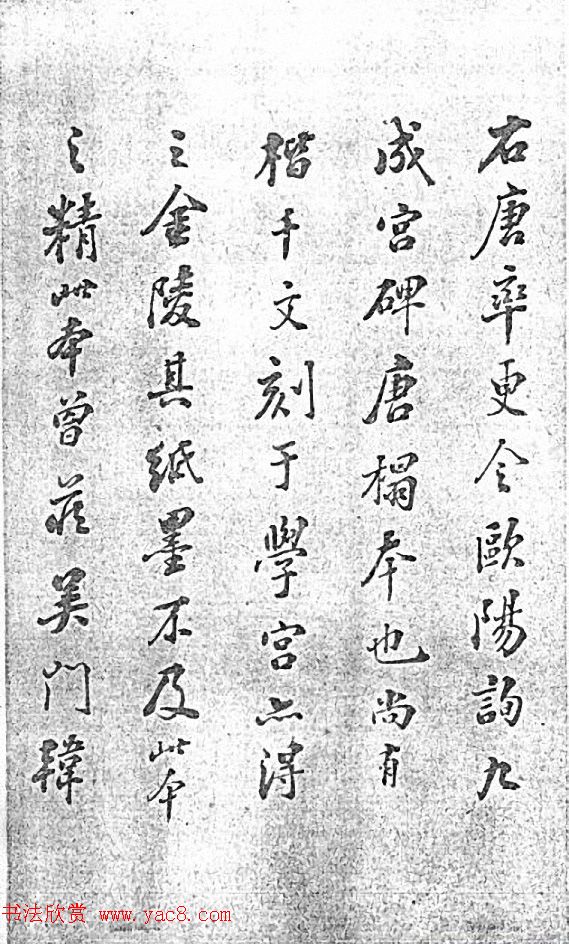 右唐率更令歐陽詢九
成宮碑唐榻本也尚有
楷千文刻于學宮亦得
之金陵其紙墨不及此本
之精此本曾藏吴門韓
书法欣赏 www.yac8.com